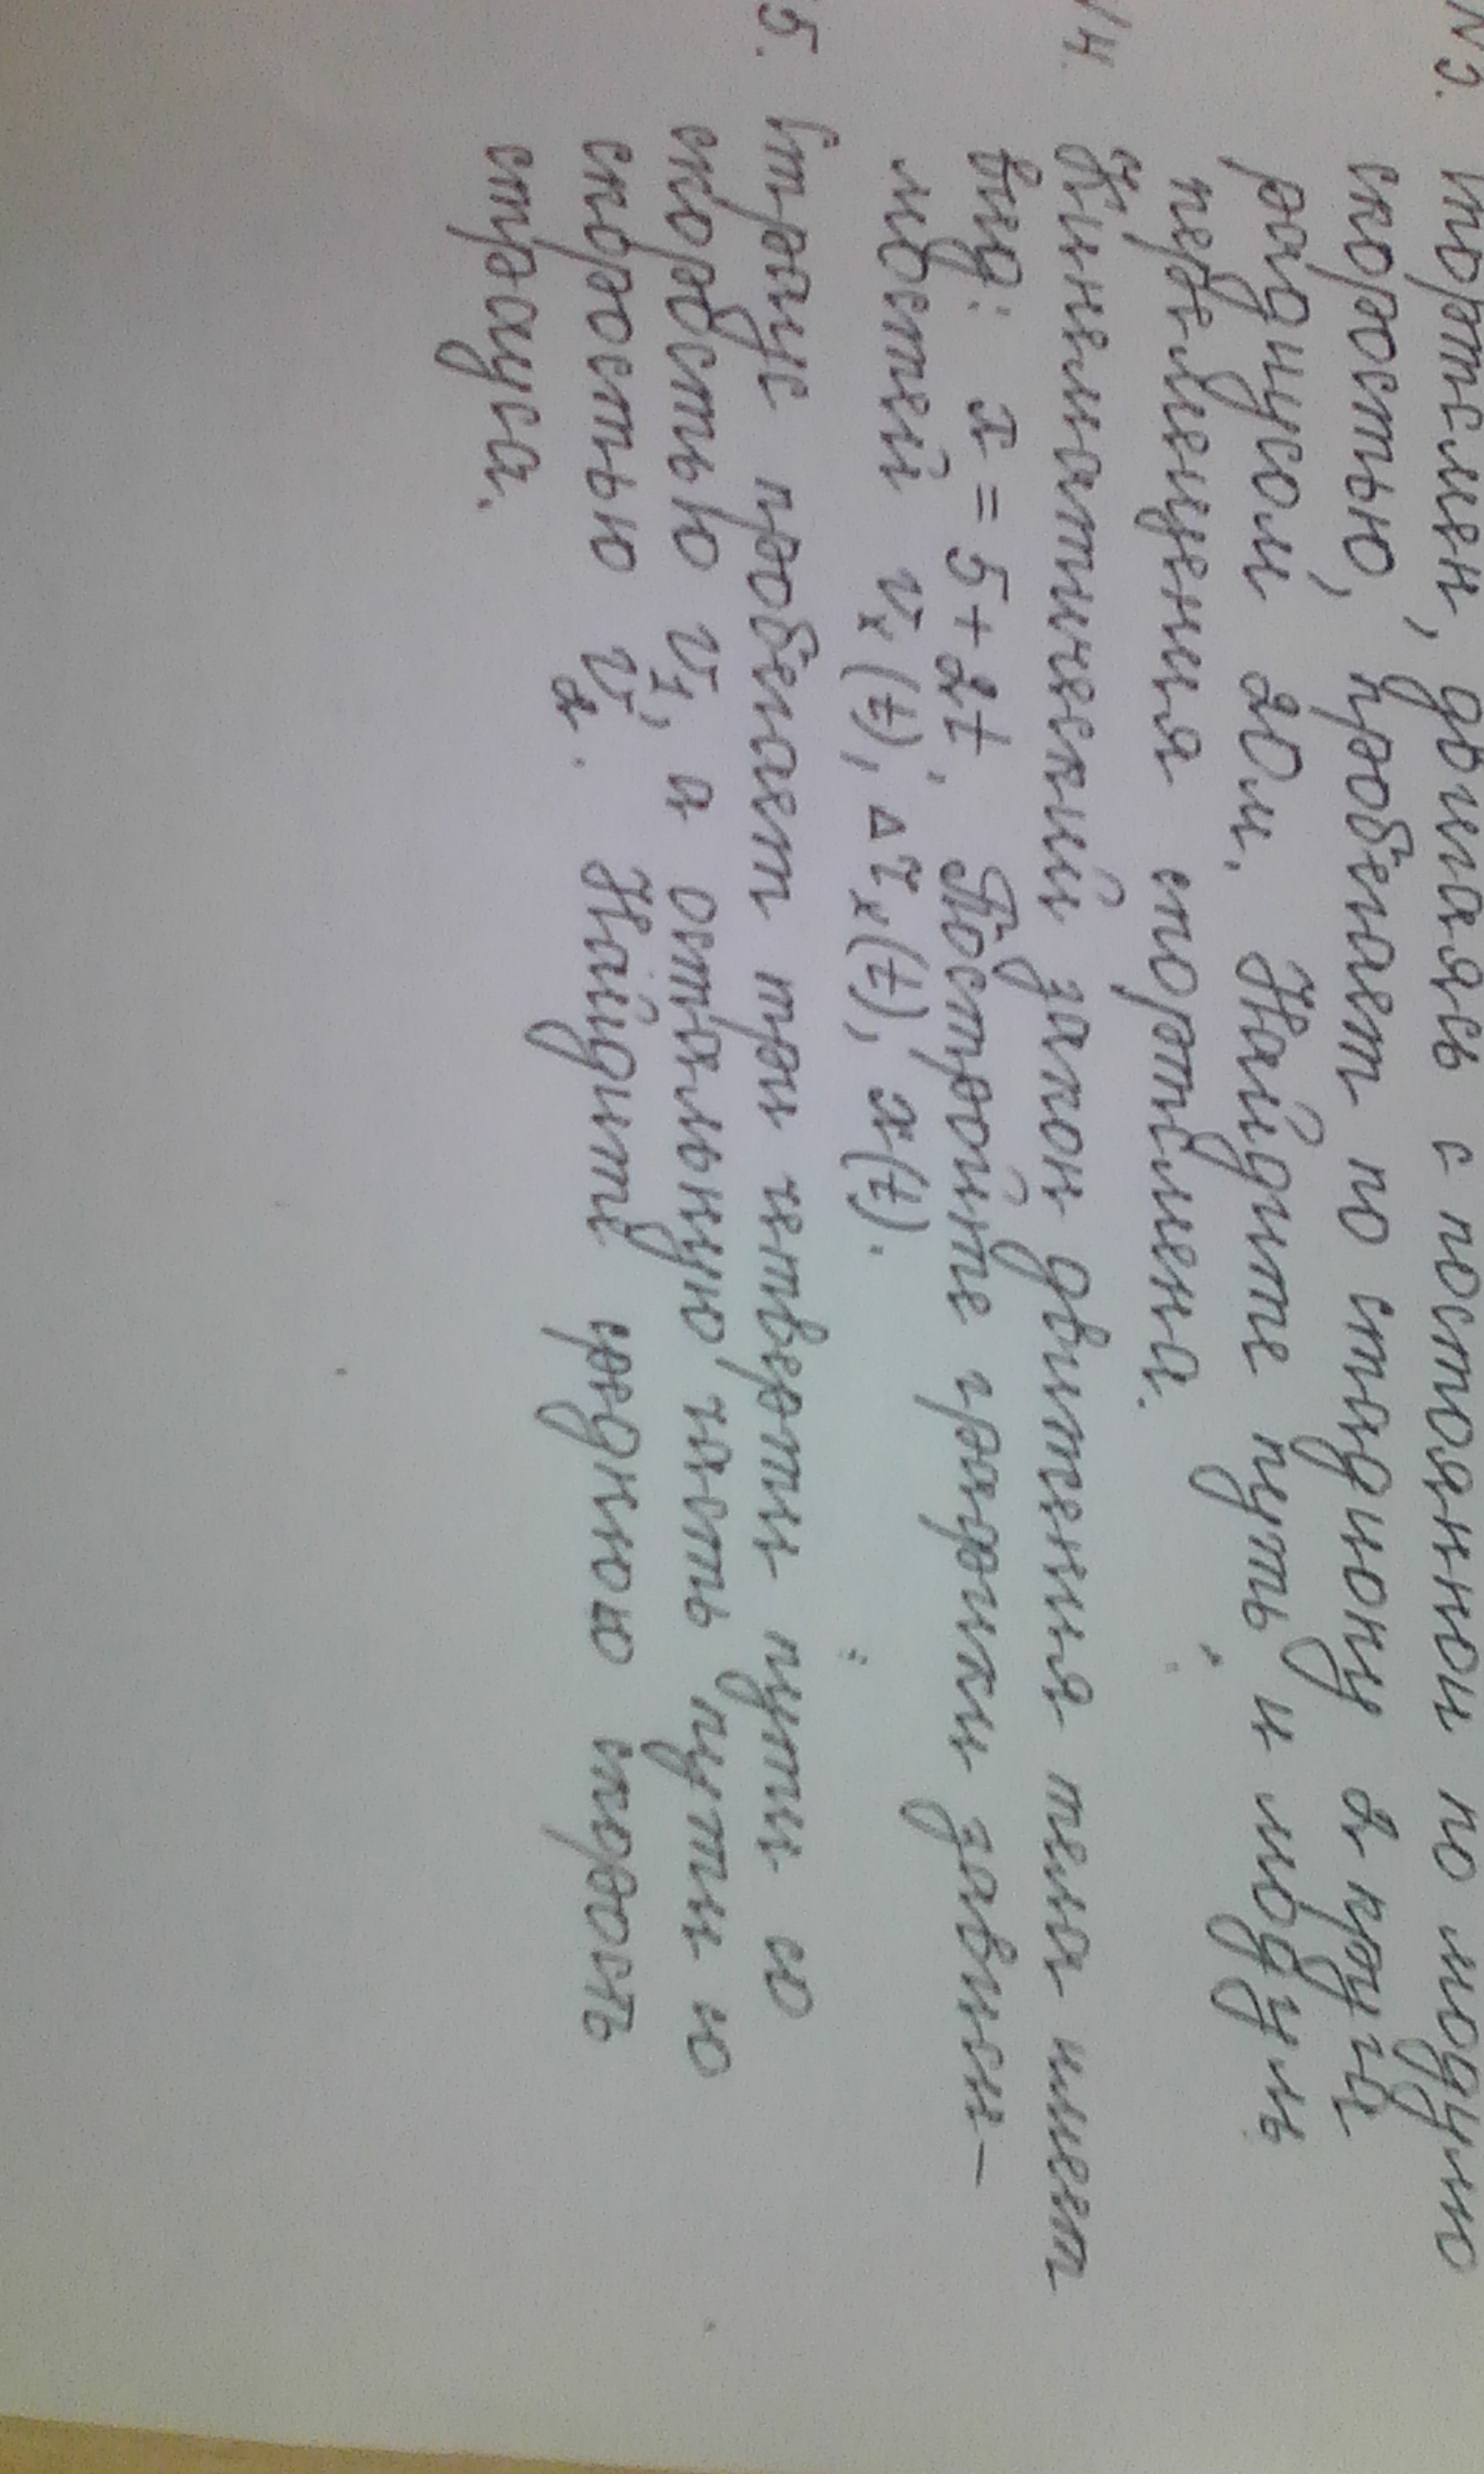 N3. Спортсмен, двигаясь с постоянной по модулю
скоростью, пробегает по стадиону 2 круга
радиусом 20м. Найдите путь и модуль
перемещения спортсмена.
N4. Кинематический закон движения тела имеет
вид: x = 5 + 2t. Постройте графики зависи-
мостей vx(t), Δrx(t), x(t).
5. Страус пробегает три четверти пути со
скоростью v1, а остальную часть пути со
скоростью v2. Найдите среднюю скорость
страуса.